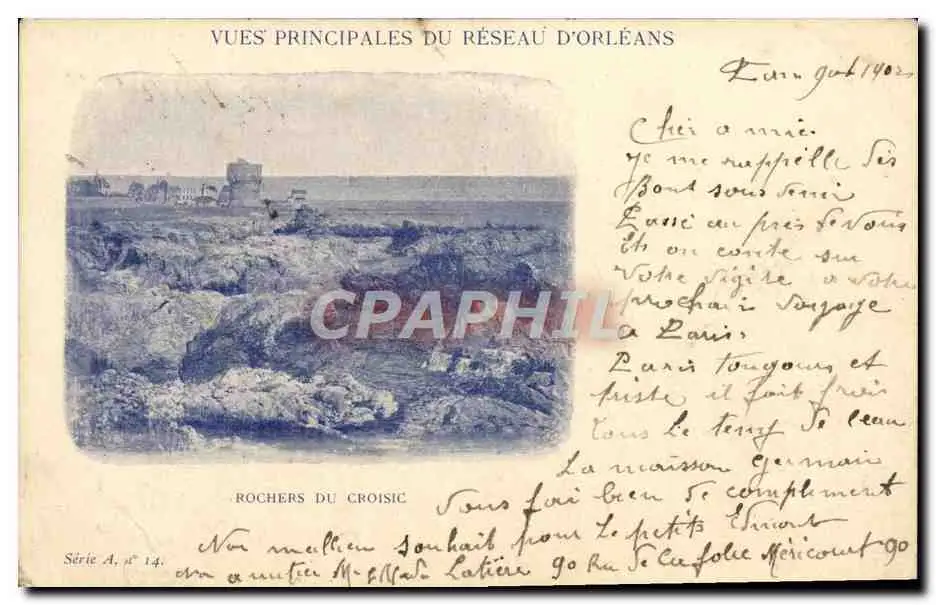 VUES PRINCIPALES DU RÉSEAU D'ORLÉANS
aout 1902
Cher a mie
Je me rappelle des
Bont souvenir
Passé au près de vous
Ets on conte sur
Votre visite a votre
prochair voyage
a Paris
Paris tougours et
triste il fait frois
tous Le temp de l'eau
La maisson Germain
Vous fai bien de complement
souhait pour Le petits Edmont
90 Rue de La folie Méricourt 90
CPAPHIL
ROCHERS DU CROISIC
Série A, nº 14.